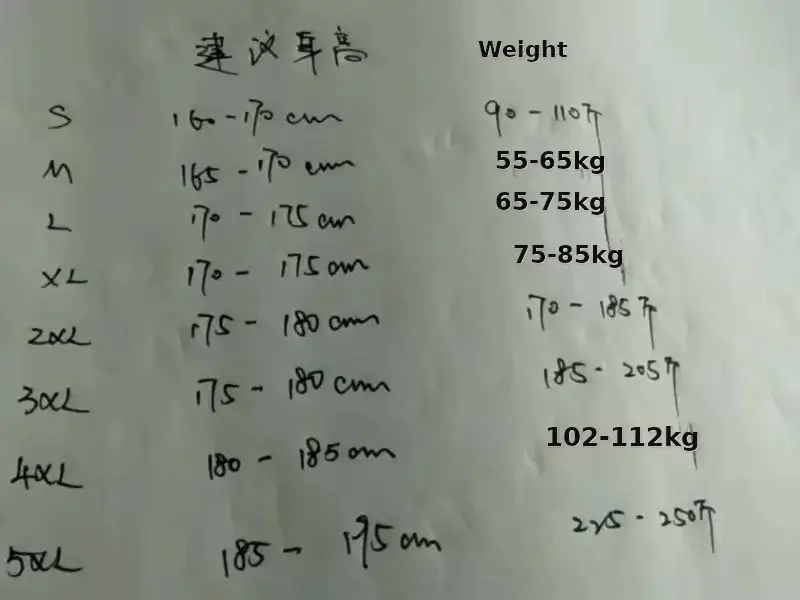 建议身高 Weight
S 160-170cm 90-110斤
M 165-170cm 55-65kg
L 170-175cm 65-75kg
XL 170-175cm 75-85kg
2XL 175-180cm 170-185斤
3XL 175-180cm 185-205斤
4XL 180-185cm 102-112kg
5XL 185-195cm 225-250斤